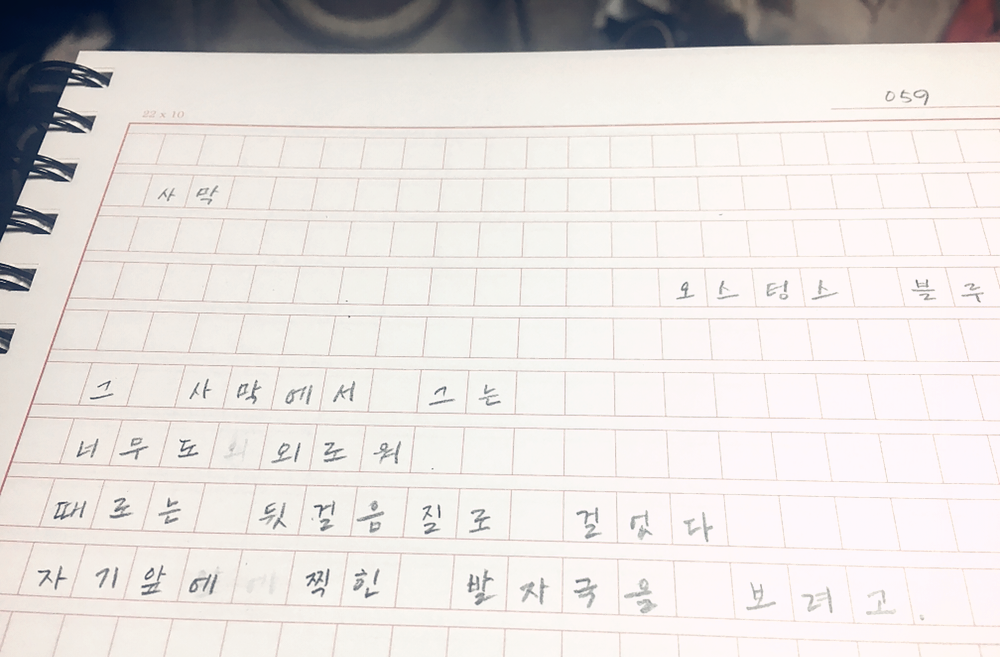 059
22 x 10
사막
오스텅스 블루
그 사막에서 그는
너무도 외로워
때로는 뒷걸음질로 걸었다
자기앞에 찍힌 발자국을 보려고.